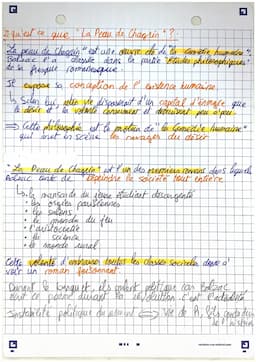 Qu'est ce que "La Peau de Chagrin" ?
"La peau de Chagrin" est une œuvre clé de "la Comédie humaine".
Balzac l'a classée dans la partie "Etudes philosophiques" de
sa fresque romanesque.
Il expose sa conception de l'existence humaine
↳ Selon lui, elle disposerait d'un capital d'énergie que
le désir et la volonté consument et détruisent peu à peu.
⇒ Cette philosophie est la de "la Comédie humaine"
qui tout en scène les ravages du désir
"La Peau de Chagrin" est l'un des premiers romans dans lequel
Balzac tente de dépeindre la société tout entière
↳ la mansarde du jeune étudiant désargenté
• les orgies parisiennes
• les salons
• le monde du jeu
• l'aristocratie
• la science
• le monde rural
Cette volonté d'embrasser toutes les classes sociales donne à
voir un roman foisonnant.
Durant le banquet, ils politique car Balzac
écrit ce durant la révolution c'est l'actualité
Instabilité politique du ⇒ vie de R,
de l'histoire